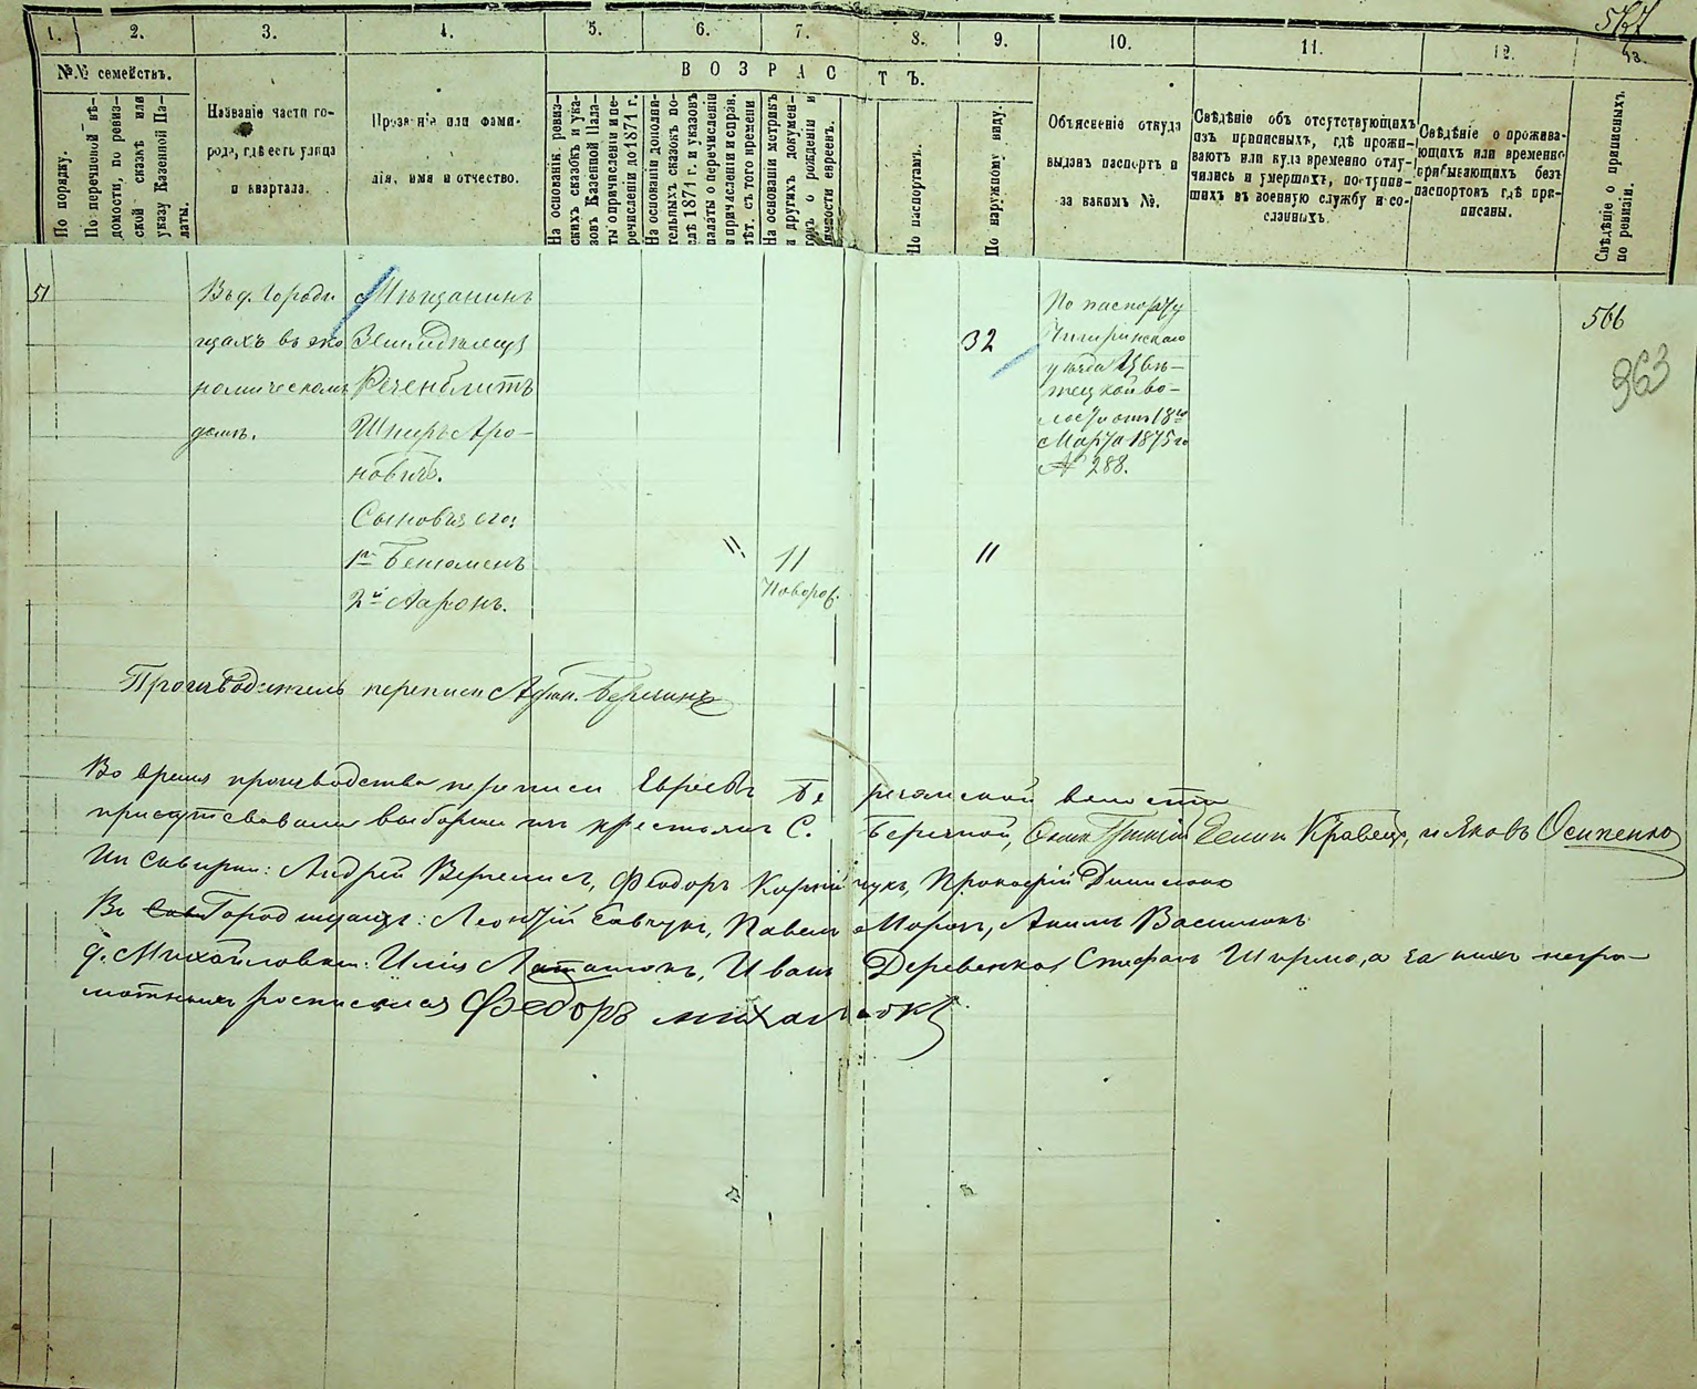 577
1. 2. 3. 4. 5. 6. 7. 8. 9. 10. 11. 12. 13.
№№ семействъ.
ВОЗРАСТЪ.
По порядку.
По перечневой вѣ-
домости, по ревиз-
ской сказкѣ или
указу Казенной Па-
латы.
Названіе части го-
рода, гдѣ есть улица
и квартала.
Прозваніе или фами-
лія, имя и отчество.
На основаніи ревиз-
скихъ сказокъ и ука-
зовъ Казенной Пала-
ты о причисленіи и пе-
речисленіи до 1871 г.
На основаніи дополни-
тельныхъ сказокъ по-
слѣ 1871 г. и указовъ
палаты о перечисленіи
и причисленіи и справ.
лѣт. съ того времени
На основаніи метрикъ
и другихъ докумен-
товъ о рожденіи и
личности евреевъ.
По паспортамъ.
По наружному виду.
Объясненіе откуда
выданъ паспортъ и
за какимъ №.
Свѣдѣніе объ отсутствующихъ
изъ приписныхъ, гдѣ прожи-
ваютъ или куда временно отлу-
чились и умершихъ, поступив-
шихъ въ военную службу и со-
сланныхъ.
Свѣдѣніе о прожива-
ющихъ или временно
пребывающихъ безъ
паспортовъ гдѣ при-
писаны.
Свѣдѣніе о приписныхъ
по ревизіи.
51
Въ д. Городи
щахъ въ эко
номическомъ
домѣ.
Мѣщанинъ
Земледѣлецъ
Реченблитъ
Шнеръ Аро-
новичъ.
Сыновья его:
1й Бенюменъ
2й Ааронъ.
"
11
Новорож.
32
11
По паспорту
Чигиринскаго
уѣзда
вo-
лости отъ 18го
Марта 1875 го
№ 288.
566
363
Производитель переписи Афан.
Во время производства переписи Евреевъ Бе резанской волости
присутствовали выборные изъ крестьянъ С. Березной, Кравецъ, и Яковъ Осипенко
Андрей Федоръ Прокофій
Въ Городищахъ: Леонтій Савчукъ, Павелъ Морозъ, Акимъ
д. Михайловки: Илія Иванъ Деревенко, Стефанъ Ширмо, а за нихъ негра-
мотныхъ росписался Федоръ